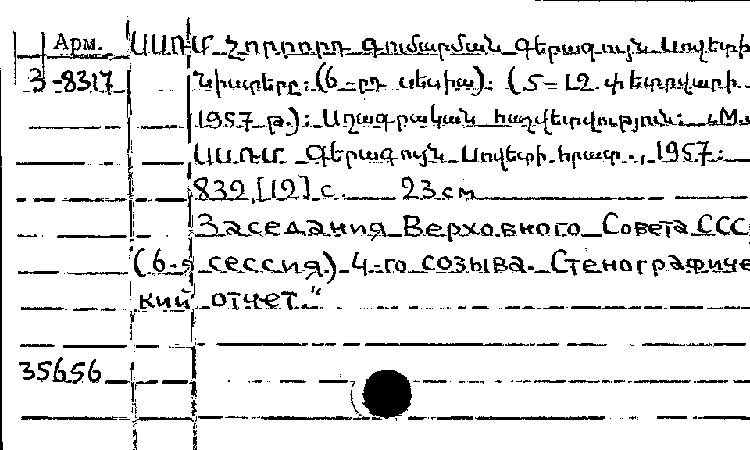 Арм. ՍՍՌՄ Չորրորդ Գումարման Գերագույն Սովետի
3-8317 Նիստերը: (6-րդ սեսիա): (5-12 փետրվարի
1957 թ.): Սղագրական հաշվետվություն: „М.
ՍՍՌՄ Գերագույն Սովետի հրատ., 1957:
832, [12] с. 23 см
Заседания Верховного Совета ССС
(6-я сессия) 4-го созыва. Стенографиче
кий отчет."
35656